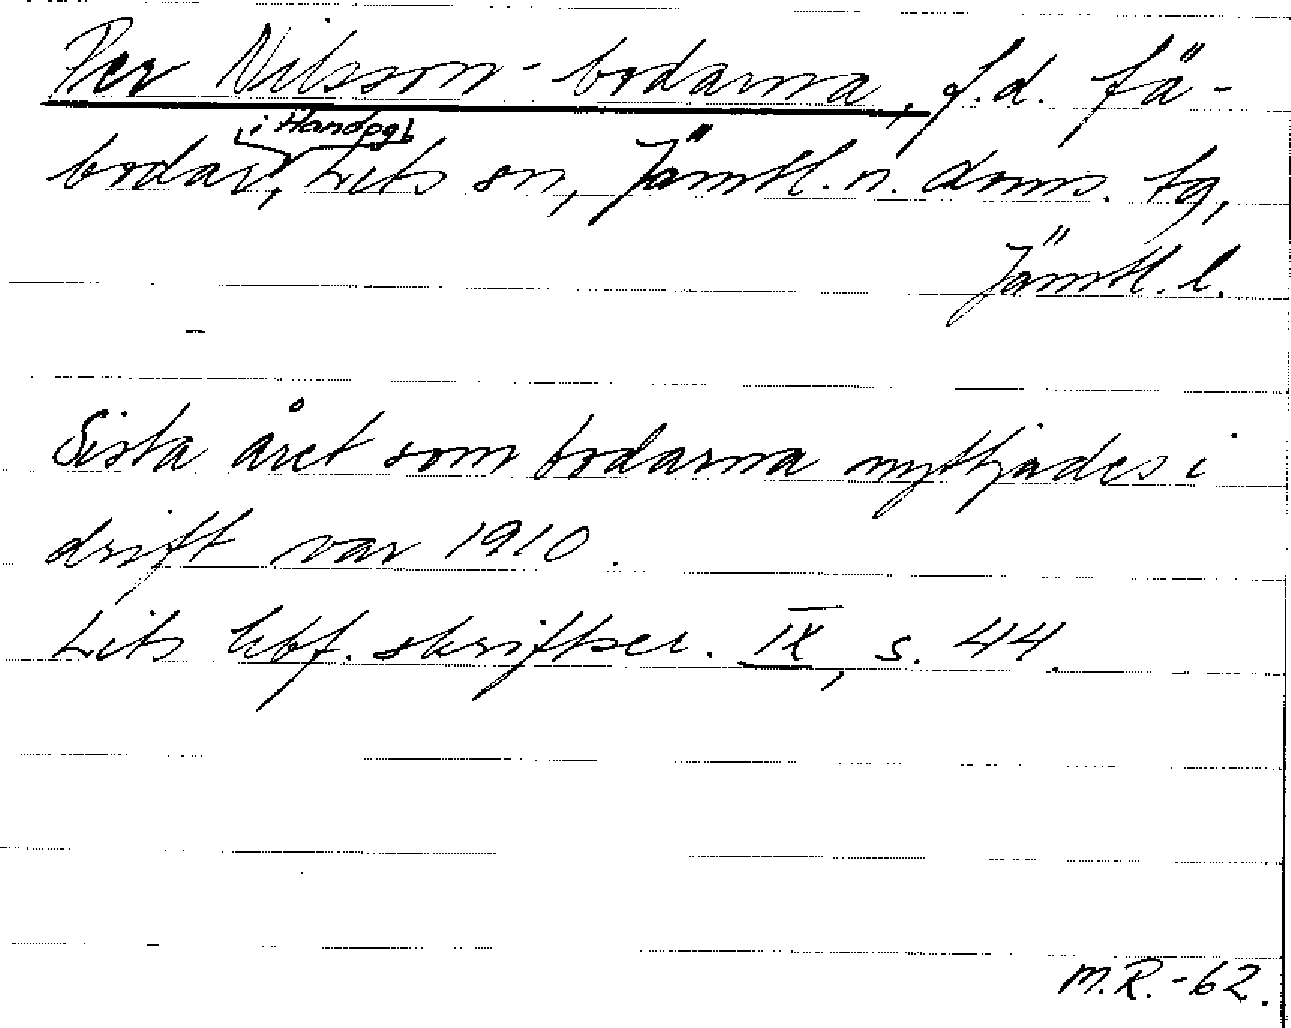 Per Nilsson-bodarna, f.d. fä-
i Handog
bodar, Lits sn, Jämtl. n. doms. tg,
Jämtl. l.
Sista året som bodarna nyttjades i
drift var 1910.
Lits hbf. skriftser. IX, s. 44.
M.R.-62.